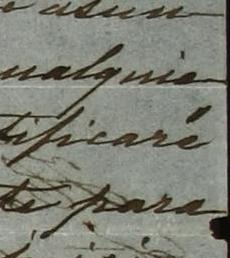 asun
ualquie
tificaré
te para